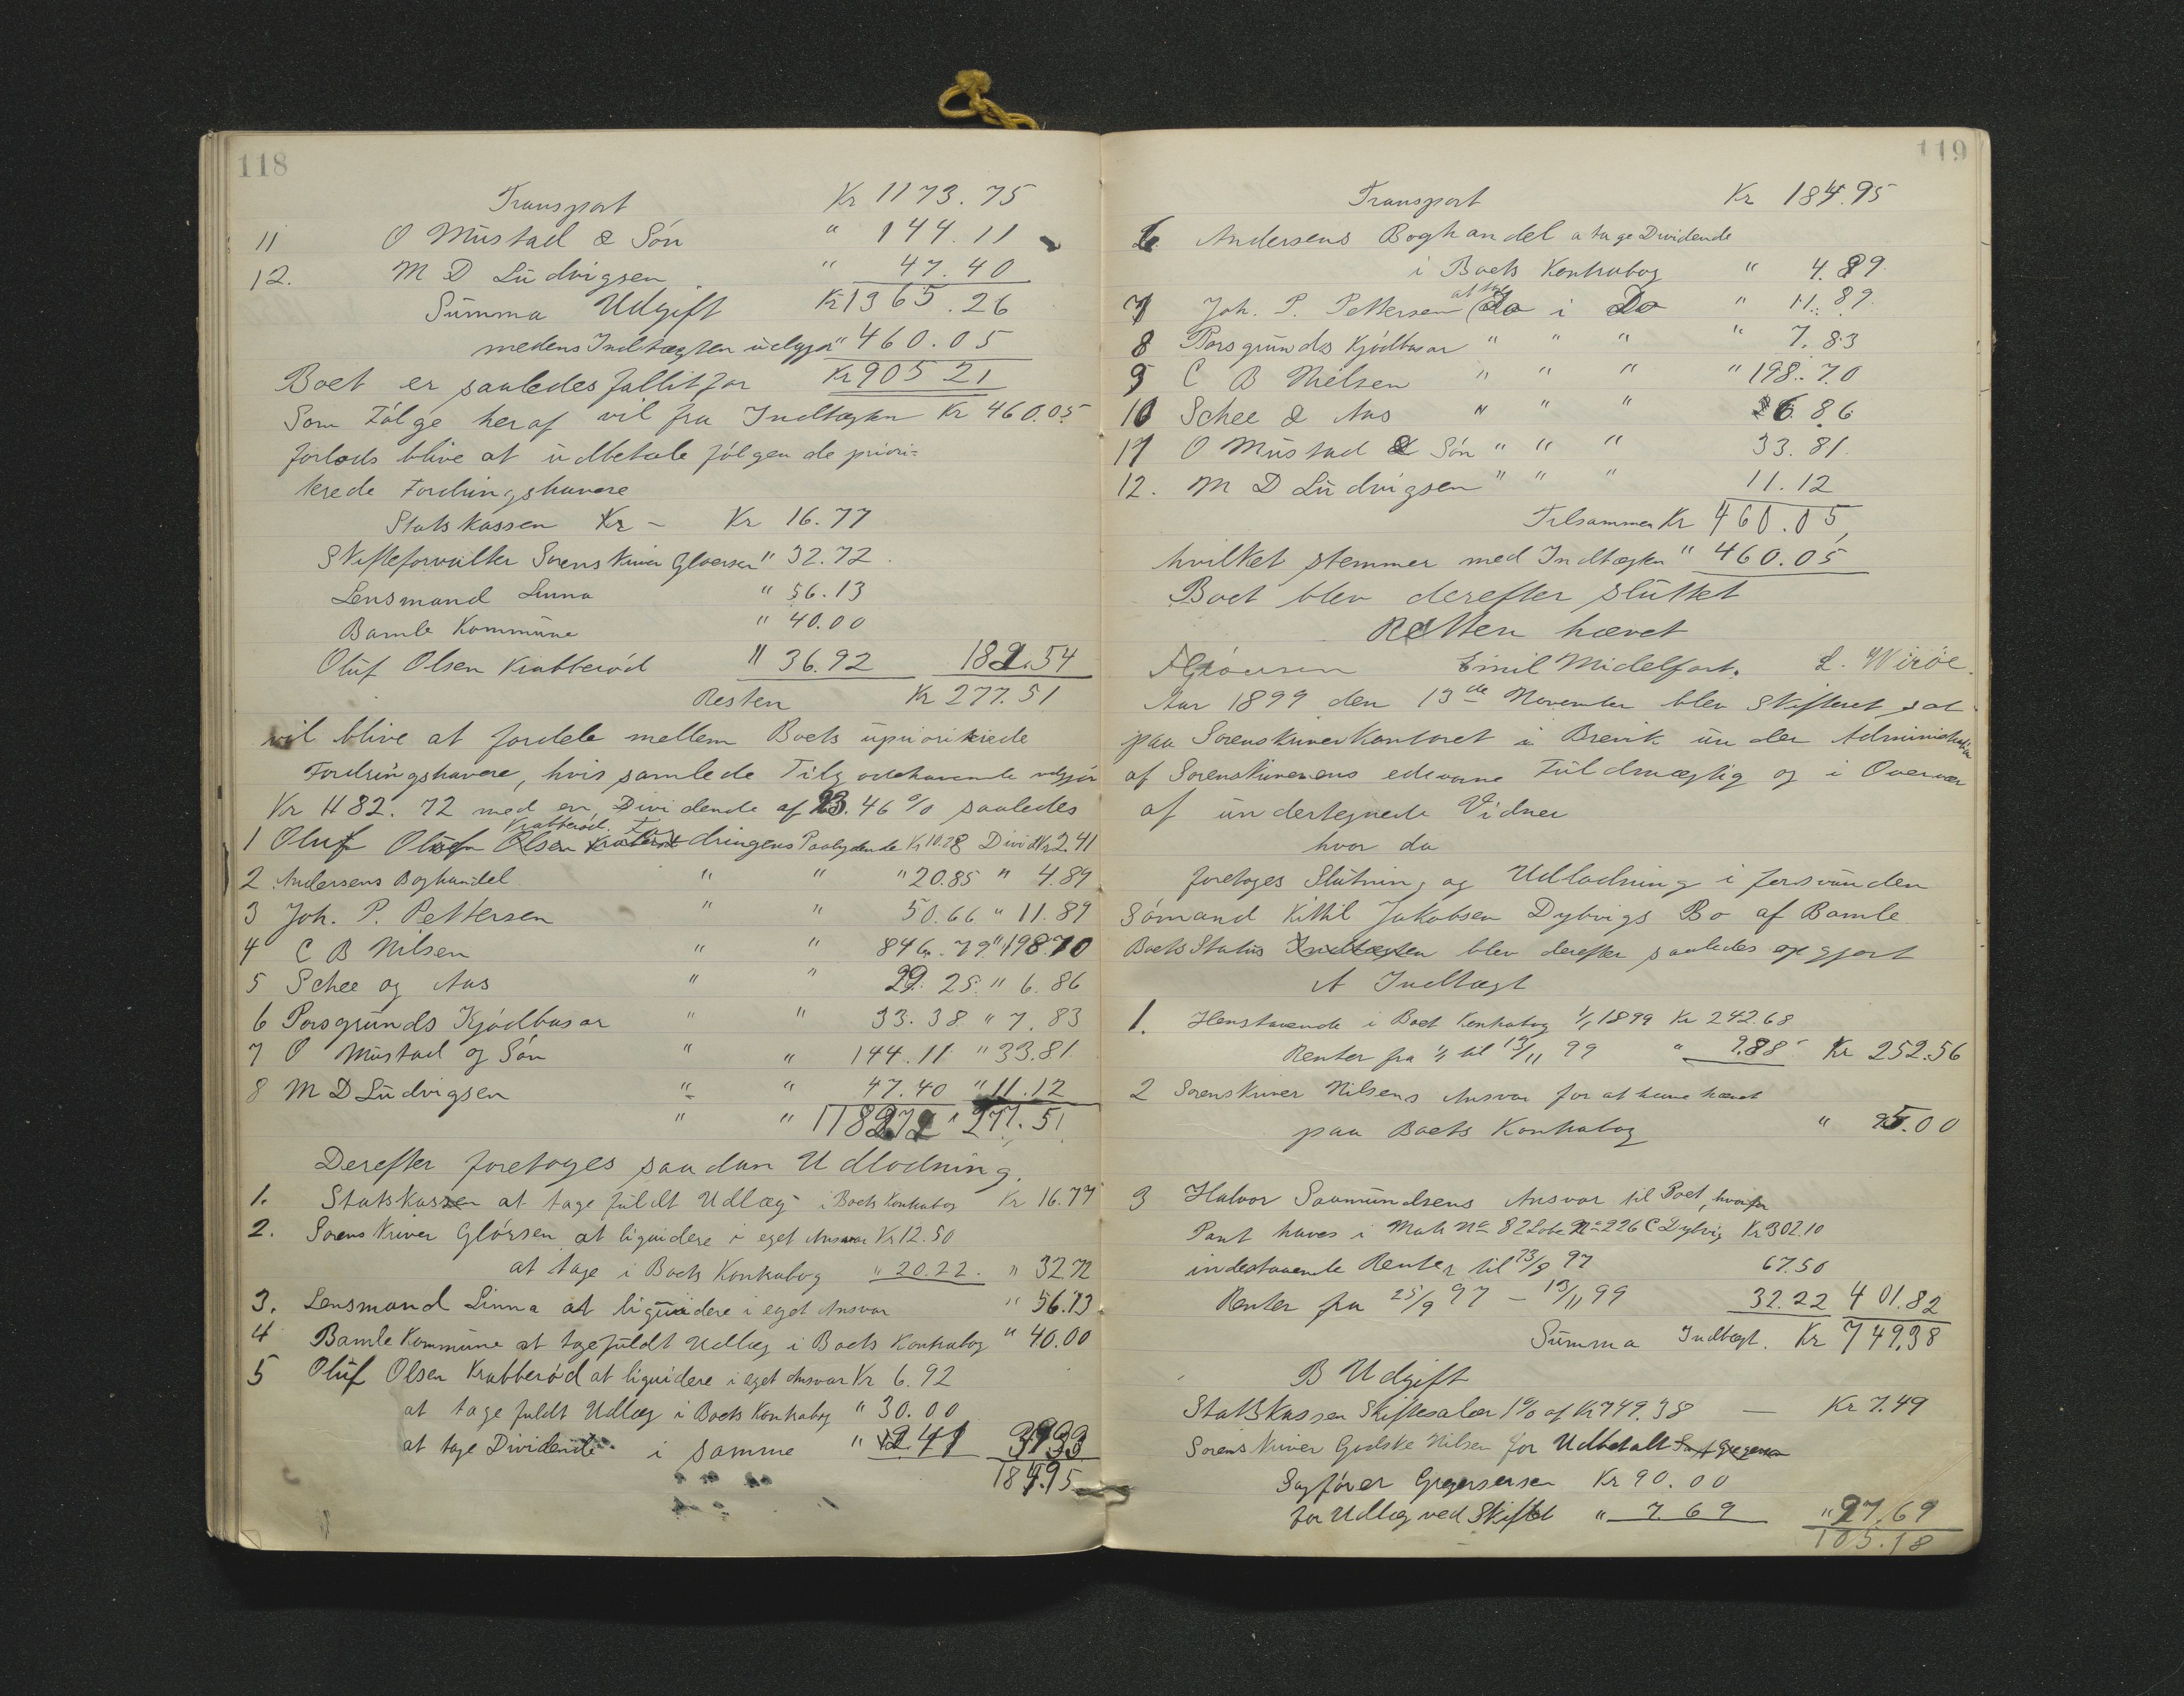 118
Transport Kr 1173.75
11 O Mustad & Søn " 144.11
12. M D Ludvigsen " 47.40
Summa Udgift Kr 1365.26
medens Indtægten udgjør " 460.05
Boet er saaledes fallit for Kr 905 21
Som Følge heraf vil fra Indtægten Kr 460.05
forlods blive at udbetale følgende priori-
terede Fordringshavere
Statskassen Kr - Kr 16.77
Skifteforvalter Sorenskriver Gløersen " 32.72
Lensmand Linna " 56.13
Bamle Kommune " 40.00
Oluf Olsen Krabberød " 36.92 182.54
Resten Kr 277.51
vil blive at fordele mellem Boets upriorterede
Fordringshavere, hvis samlede Tilgodehavende udgjør
Kr 1182.72 med en Dividende af 23.46 % saaledes
Krabberød. For
1 Oluf Olsen Olsen Krabberød dringens Paalydende Kr 10.28 Divid Kr 2.41
2 Andersens Boghandel " " " 20.85 " 4.89
3 Joh. P. Pettersen " " 50.66 " 11.89
4 C B Nilsen " " 846.79 " 198.70
5 Schee og Aas " " 29.25 " 6.86
6 Porsgrunds Kjødbasar " " 33.38 " 7.83
7 O Mustad og Søn " " 144.11 " 33.81
8 M D Ludvigsen " " 47.40 " 11.12
" " 1182.72 " 277.51
Derefter foretoges saadan Udlodning.
1. Statskassen at tage fuldt Udlæg i Boets Kontrabog Kr 16.77
2. Sorenskriver Gløersen at liquidere i eget Ansvar Kr 12.50
at tage i Boets Kontrabog " 20.22. " 32.72
3. Lensmand Linna at liquidere i eget Ansvar " 56.13
4 Bamle Kommune at tage fuldt Udlæg i Boets Kontrabog " 40.00
5 Oluf Olsen Krabberød at liquidere i eget Ansvar Kr 6.92
at tage fuldt Udlæg i Boets Kontrabog " 30.00
at tage Dividende i samme " 2.41 39.33
184.95
119
Transport Kr 184.95
6 Andersens Boghandel a tage Dividende
i Boets Kontrabog " 4.89
at tage
7 Joh. P. Pettersen do i Do " 11.89
8 Porsgrunds Kjødbasar " " " " 7.83
9 C B Nielsen " " " " 198.70
10 Schee & Aas " " " 6.86
11 O Mustad & Søn " " " 33.81
12. M D Ludvigsen " " " 11.12
Tilsammen Kr 460.05,
hvilket stemmer med Indtægten " 460.05
Boet blev derefter sluttet
Retten hævet
Gløersen Emil Midelfart. L. Wirøe.
Aar 1899 den 13de November blev Skifteret sat
paa Sorenskriverkontoret i Brevik under Administration
af Sorenskriverens edsvorne Fuldmægtig og i Overvær
af undertegnede Vidner
hvor da
foretoges Slutning og Udlodning i forsvunden
Sømand Kittil Jakobsen Dybvigs Bo af Bamle
Boets Status Indtægten blev derefter saaledes opgjort
A Indtægt
1. Henstaaende i Boet Kontrabog 1/1 1899 Kr 242.68
Renter fra 1/1 til 13/11 99 " 9.88 Kr 252.56
2 Sorenskriver Nilsens Ansvar for at have hævet
paa Boets Kontrabog " 95.00
3 Halvor Saamundsens Ansvar til Boet, hvorfor
Pant haves i Matr No 82 Løbe No 226 C Dybvig Kr 302.10
indestaaende Renter til 23/9 97 67.50
Renter fra 25/9 97 – 13/11 99 32.22 401.82
Summa Indtægt. Kr 749.38
B Udgift
Statskassen Skiftesalær 1% af Kr 749.38 — Kr 7.49
Sorenskriver Godske Nilsen for Udbetalt
Sagfører Gregersersen Kr 90.00
for Udlæg ved Skiftet " 7.69 " 97.69
105.18